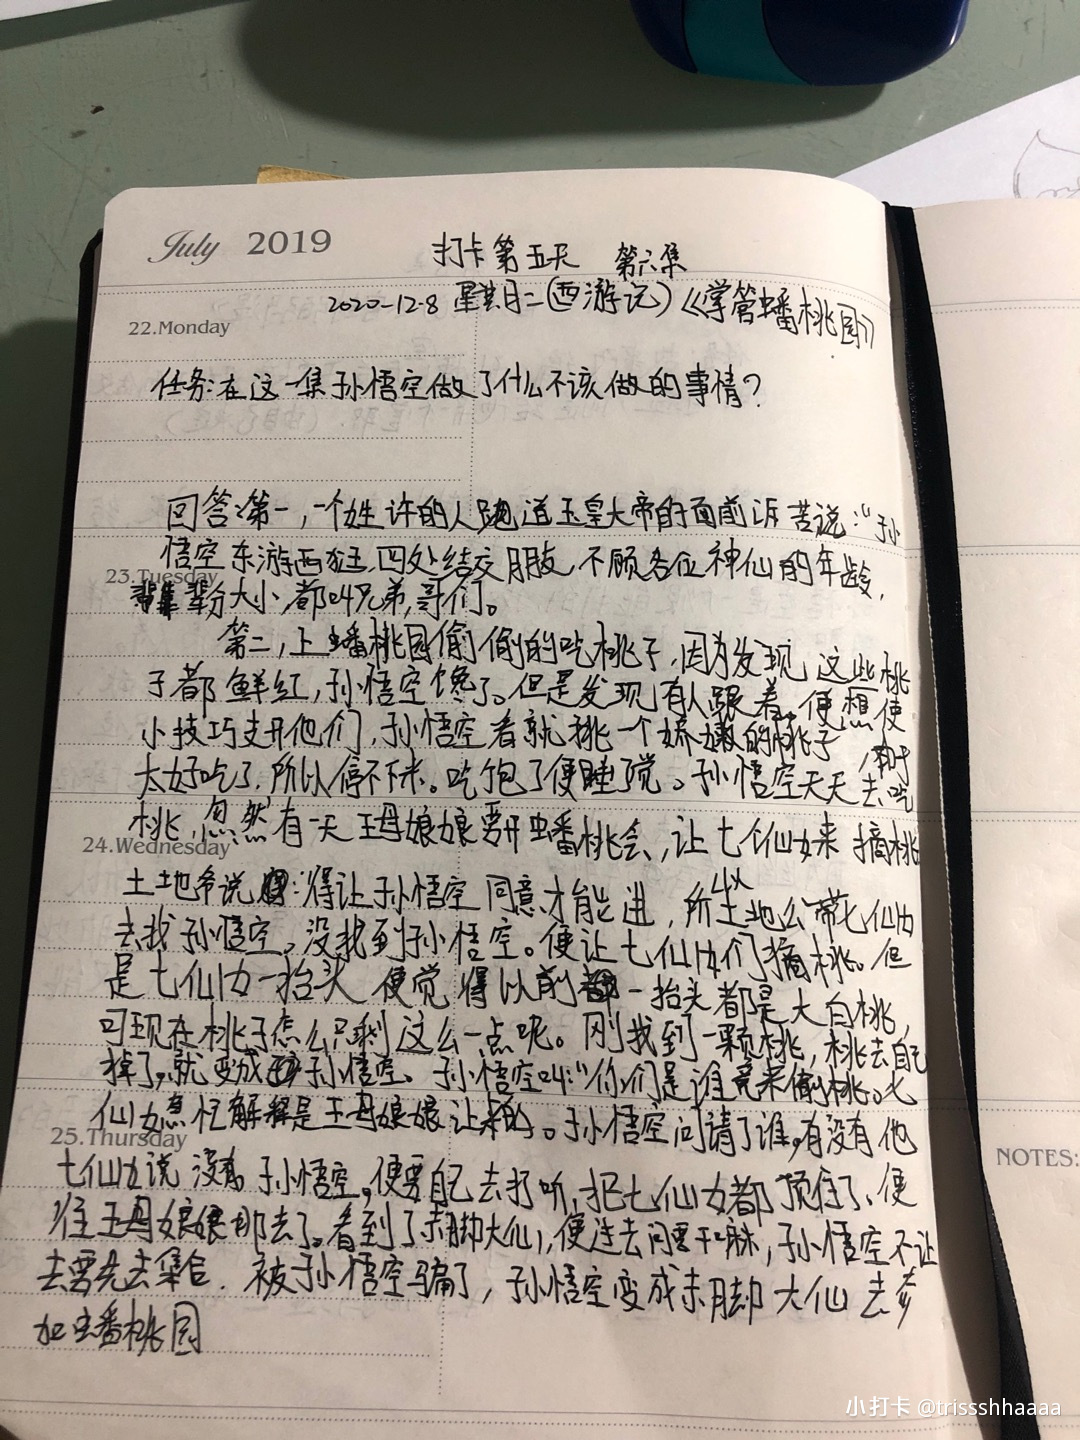 July 2019
打卡第五天 第六集
2020-12-8 星期二(西游记)《掌管蟠桃园》
22.Monday
任务:在这一集孙悟空做了什么不该做的事情?
回答:第一,一个姓许的人跑道玉皇大帝的面前诉苦说:“孙
悟空东游西狂,四处结交朋友,不顾各位神仙的年龄,
23.Tuesday
辈分大小,都叫兄弟,哥们。
第二,上蟠桃园偷偷的吃桃子,因为发现这些桃
子都鲜红,孙悟空馋了。但是发现有人跟着,便想使
小技巧支开他们,孙悟空看就挑一个娇嫩的桃子,由于
太好吃了,所以停不下来。吃饱了便睡了觉。孙悟空天天去吃
桃,忽然有一天王母娘娘要开蟠桃会,让七个仙女来摘桃
24.Wednesday
土地爷说:得让孙悟空同意才能进,所以土地公带七仙女
去找孙悟空。没找到孙悟空。便让七仙女们摘桃。但
是七仙女一抬头便觉得以前一抬头都是大白桃,
可现在桃子怎么只剩这么一点呢。刚找到一颗桃,桃去自己
掉了,就变成孙悟空。孙悟空叫:“你们是谁竟来偷桃。七
仙女急忙解释是王母娘娘让来的。孙悟空问请了谁,有没有他
25.Thursday
七仙女说没有孙悟空。便要自己去打听,把七仙女都顶住了、便
往王母娘娘那去了。看到了赤脚大仙,便进去问要干嘛,孙悟空不让
去要先去集合.被孙悟空骗了,孙悟空变成赤脚大仙去参
加蟠桃园
NOTES:
小打卡 @trissshhaaaa